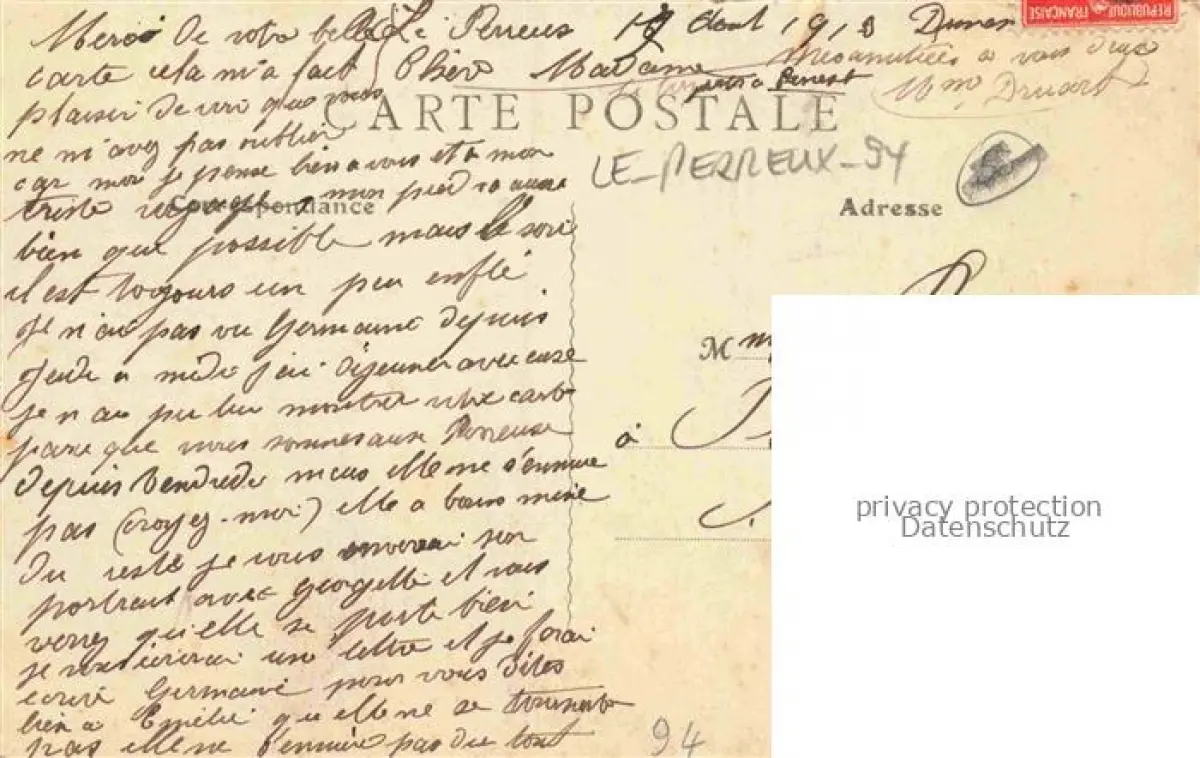 Le Perreux 17 Aout 1913
REPUBLIQUE FRANÇAISE
Merci de votre belle
carte cela m'a fait
Chère Madame
plaisir de voir que vous
ne m'avez pas oublier
CARTE POSTALE
mes amitiées a vous deux
Mme Druart
LE-PERREUX-94
car moi je pense bien a vous et a mon
triste voyage mon pied va aussi
Correspondance
Adresse
bien que possible mais le soir
il est toujours un peu enflé
Je n'ai pas vu Germaine depuis
Jeudi a midi j'ai déjeuner avec
je n'ai pu lui montrer votre carte
parce que nous sommes aux Perreux
depuis Vendredi mais elle ne s'ennuie
pas (croyez-moi) elle a bonne mine
Du reste je vous enverrai son
portrait avec Georgette et vous
verrez qu'elle se porte bien
je une lettre et je ferai
ecrire Germaine pour vous dites
bien a Emélie qu'elle ne se tourmente
pas elle ne s'ennuie pas du tout
M
à
94
privacy protection
Datenschutz